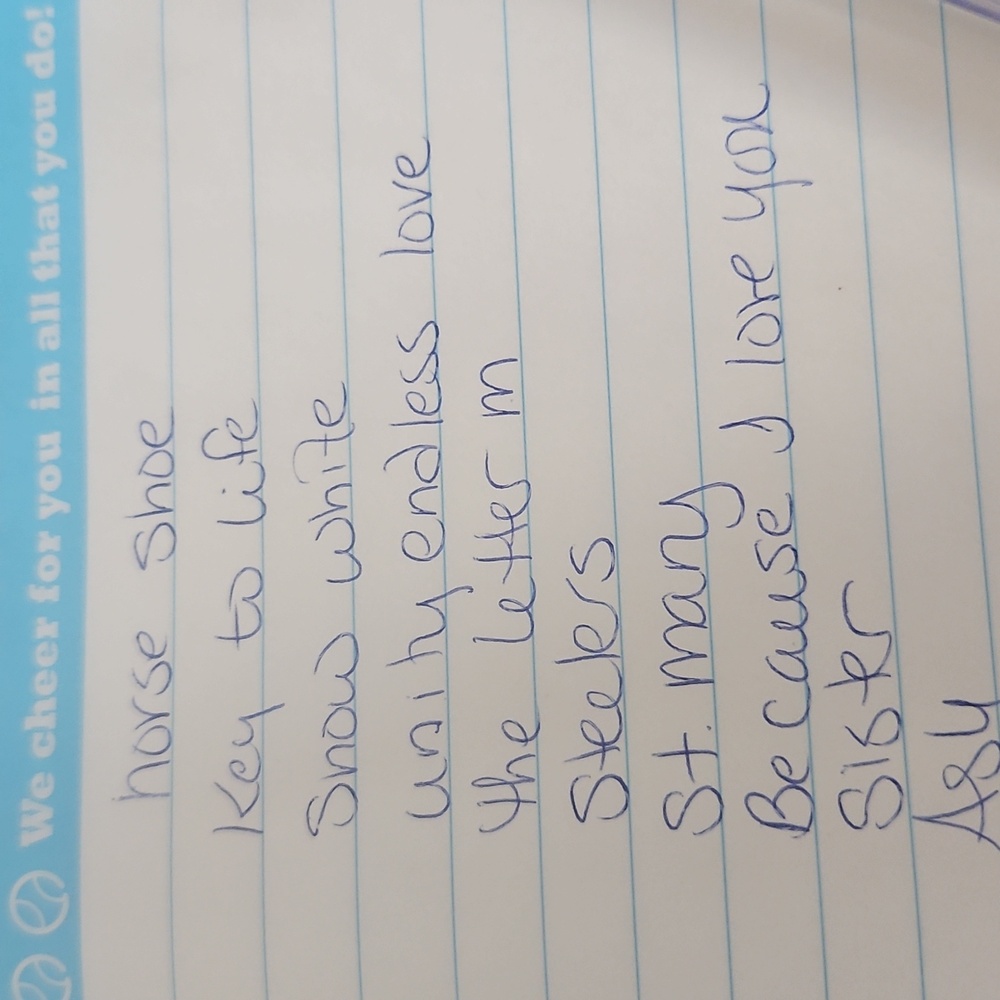 We cheer for you in all that you do!
horse shoe
Key to life
Snow white
unity endless love
the letter m
Steelers
St. mary
Because I love you
Sister
ASU